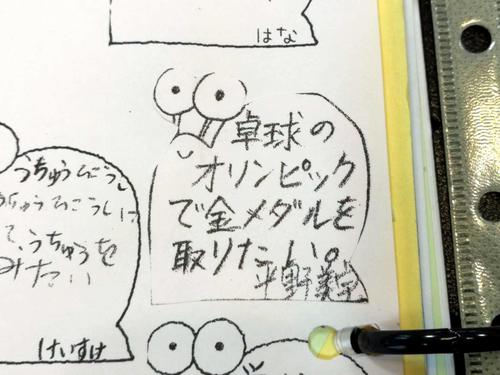 はな
卓球の
オリンピック
で金メダルを
取りたい。
平野美宇
うちゅうひこうし
ちゅうひこうしに
て、うちゅうを
みたい
けいすけ